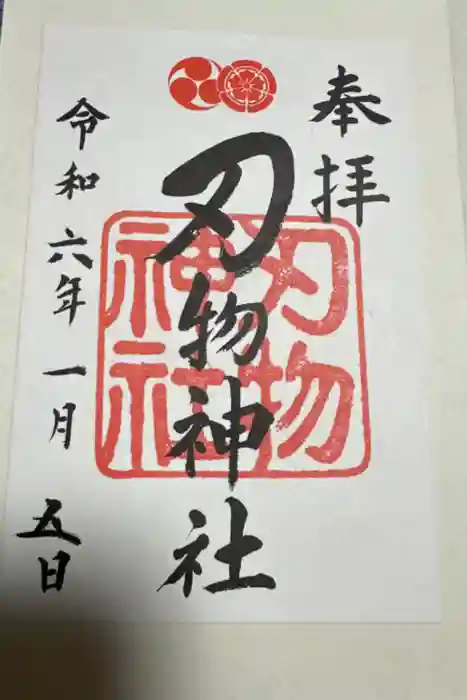 奉拝
刃物神社
刃物
神社
令和六年一月五日